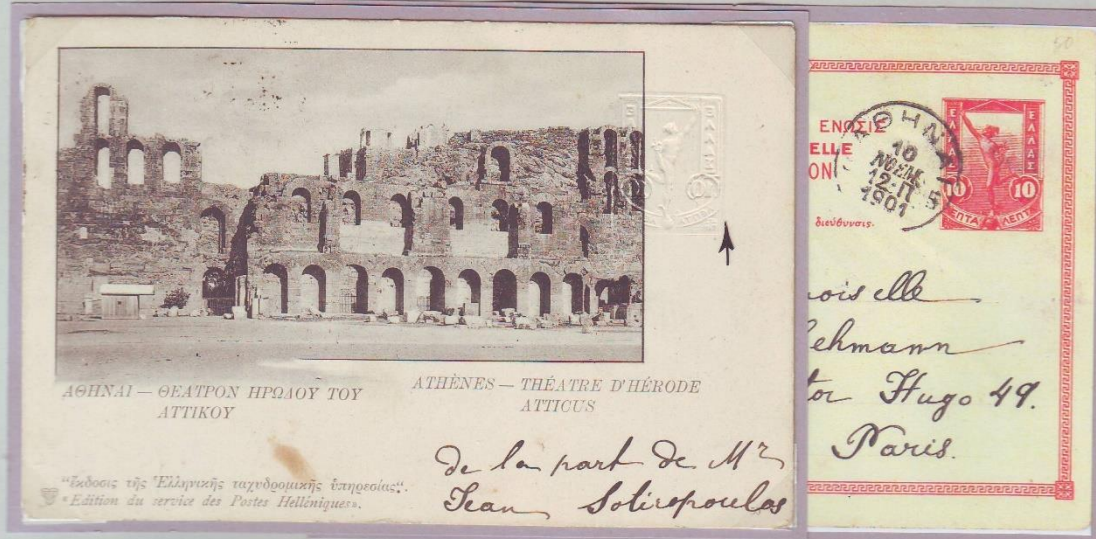 ΑΘΗΝΑΙ — ΘΕΑΤΡΟΝ ΗΡΩΔΟΥ ΤΟΥ
ΑΤΤΙΚΟΥ
ATHÈNES — THÉATRE D'HÉRODE
ATTICUS
"Ἔκδοσις τῆς Ἑλληνικῆς ταχυδρομικῆς ὑπηρεσίας".
"Edition du service des Postes Helléniques».
de la part de Mr
Jean Sotiropoulos
50
ΕΝΩΣΙΣ
ELLE
ON
διεύθυνσις.
ΑΘΗΝΑΙ
10
ΝΟΕΜ.
12-Π
1901
5
ΕΛΛΑΣ
ΕΛΛΑΣ
10
ΛΕΠΤ
oiselle
ehmann
tor Hugo 49.
Paris.